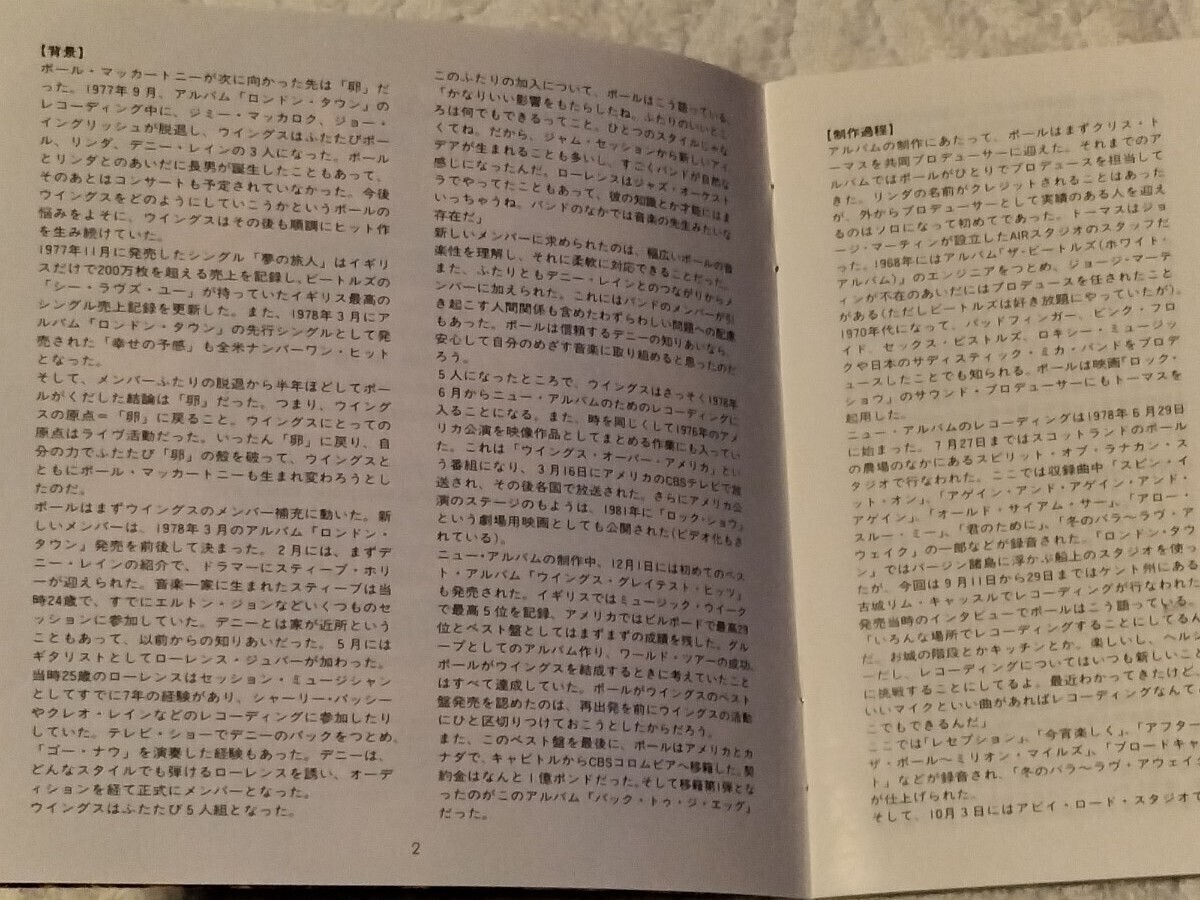 【背景】
ポール・マッカートニーが次に向かった先は「卵」だ
った。1977年9月、アルバム「ロンドン・タウン」の
レコーディング中に、ジミー・マッカロク、ジョー・
イングリッシュが脱退し、ウイングスはふたたびポー
ル、リンダ、デニー・レインの3人になった。ポール
とリンダとのあいだに長男が誕生したこともあって、
そのあとはコンサートも予定されていなかった。今後
ウイングスをどのようにしていこうかというポールの
悩みをよそに、ウイングスはその後も順調にヒット作
を生み続けていた。
1977年11月に発売したシングル「夢の旅人」はイギリ
スだけで200万枚を超える売上を記録し、ビートルズの
「シー・ラヴズ・ユー」が持っていたイギリス最高の
シングル売上記録を更新した。また、1978年3月にア
ルバム「ロンドン・タウン」の先行シングルとして発
売された「幸せの予感」も全米ナンバーワン・ヒット
となった。
そして、メンバーふたりの脱退から半年ほどしてポー
ルがくだした結論は「卵」だった。つまり、ウイング
スの原点＝「卵」に戻ること。ウイングスにとっての
原点はライヴ活動だった。いったん「卵」に戻り、自
分の力でふたたび「卵」の殻を破って、ウイングスと
ともにポール・マッカートニーも生まれ変わろうとし
たのだ。
ポールはまずウイングスのメンバー補充に動いた。新
しいメンバーは、1978年3月のアルバム「ロンドン・
タウン」発売を前後して決まった。2月には、まずデ
ニー・レインの紹介で、ドラマーにスティーブ・ホリ
ーが迎えられた。音楽一家に生まれたスティーブは当
時24歳で、すでにエルトン・ジョンなどいくつものセ
ッションに参加していた。デニーとは家が近所という
こともあって、以前からの知りあいだった。5月には
ギタリストとしてローレンス・ジュバーが加わった。
当時25歳のローレンスはセッション・ミュージシャン
としてすでに7年の経験があり、シャーリー・バッシー
やクレオ・レインなどのレコーディングに参加したり
していた。テレビ・ショーでデニーのバックをつとめ、
「ゴー・ナウ」を演奏した経験もあった。デニーは、
どんなスタイルでも弾けるローレンスを誘い、オーデ
ィションを経て正式にメンバーとなった。
ウイングスはふたたび5人組となった。
このふたりの加入について、ポールはこう語っている。
「かなりいい影響をもたらしたね。ふたりのいいとこ
ろは何でもできるってこと。ひとつのスタイルじゃな
くてね。だから、ジャム・セッションから新しいアイ
デアが生まれることも多いし、すごくバンドが自然な
感じになったんだ。ローレンスはジャズ・オーケスト
ラでやってたこともあって、彼の知識とか才能にはま
いっちゃうね。バンドのなかでは音楽の先生みたいな
存在だ」
新しいメンバーに求められたのは、幅広いポールの音
楽性を理解し、それに柔軟に対応できることだった。
また、ふたりともデニー・レインとのつながりからメ
ンバーに加えられた。これにはバンドのメンバーが引
き起こす人間関係も含めたわずらわしい問題への配慮
もあった。ポールは信頼するデニーの知りあいなら、
安心して自分のめざす音楽に取り組めると思ったのだ
ろう。
5人になったところで、ウイングスはさっそく1978年
6月からニュー・アルバムのためのレコーディングに
入ることになる。また、時を同じくして1976年のアメ
リカ公演を映像作品としてまとめる作業にも入ってい
た。これは「ウイングス・オーバー・アメリカ」とい
う番組になり、3月16日にアメリカのCBSテレビで放
送され、その後各国で放送された。さらにアメリカ公
演のステージのもようは、1981年に「ロック・ショウ」
という劇場用映画としても公開された(ビデオ化もさ
れている)。
ニュー・アルバムの制作中、12月1日には初めてのベス
ト・アルバム「ウイングス・グレイテスト・ヒッツ」
も発売された。イギリスではミュージック・ウイーク
で最高5位を記録、アメリカではビルボードで最高29
位とベスト盤としてはまずまずの成績を残した。グル
ープとしてのアルバム作り、ワールド・ツアーの成功、
ポールがウイングスを結成するときに考えていたこと
はすべて達成していた。ポールがウイングスのベスト
盤発売を認めたのは、再出発を前にウイングスの活動
にひと区切りつけておこうとしたからだろう。
また、このベスト盤を最後に、ポールはアメリカとカ
ナダで、キャピトルからCBSコロムビアへ移籍した。契
約金はなんと1億ポンドだった。そして移籍第1弾とな
ったのがこのアルバム「バック・トゥ・ジ・エッグ」
だった。
2
【制作過程】
アルバムの制作にあたって、ポールはまずクリス・ト
ーマスを共同プロデューサーに迎えた。それまでのア
ルバムではポールがひとりでプロデュースを担当して
きた。リンダの名前がクレジットされることはあった
が、外からプロデューサーとして実績のある人を迎え
るのはソロになって初めてであった。トーマスはジョ
ージ・マーティンが設立したAIRスタジオのスタッフだ
った。1968年にはアルバム「ザ・ビートルズ(ホワイト・
アルバム)」のエンジニアをつとめ、ジョージ・マーテ
ィンが不在のあいだにはプロデュースを任されたこと
がある(ただしビートルズは好き放題にやっていたが)。
1970年代になって、バッドフィンガー、ピンク・フロ
イド、セックス・ピストルズ、ロキシー・ミュージッ
クや日本のサディスティック・ミカ・バンドをプロデ
ュースしたことでも知られる。ポールは映画「ロック・
ショウ」のサウンド・プロデューサーにもトーマスを
起用した。
ニュー・アルバムのレコーディングは1978年6月29日
に始まった。7月27日まではスコットランドのポール
の農場のなかにあるスピリット・オブ・ラナカン・ス
タジオで行なわれた。ここでは収録曲中「スピン・イ
ット・オン」、「アゲイン・アンド・アゲイン・アンド・
アゲイン」、「オールド・サイアム・サー」、「アロー・
スルー・ミー」、「君のために」、「冬のバラ～ラヴ・ア
ウェイク」の一部などが録音された。「ロンドン・タウ
ン」ではバージン諸島に浮かぶ船上のスタジオを使っ
たが、今回は9月11日から29日まではケント州にある
古城リム・キャッスルでレコーディングが行なわれた。
発売当時のインタビューでポールはこう語っている。
「いろんな場所でレコーディングすることにしてるん
だ。お城の階段とかキッチンとか。楽しいし、ヘルシ
ーだし、レコーディングについてはいつも新しいこと
に挑戦することにしてるよ。最近わかってきたけど、
いいマイクといい曲があればレコーディングなんて
こでもできるんだ」
ここでは「レセプション」、「今宵楽しく」、「アフター・
ザ・ボール～ミリオン・マイルズ」、「ブロードキャ
ト」などが録音され、「冬のバラ～ラヴ・アウェイク」
が仕上げられた。
そして、10月3日にはアビイ・ロード・スタジオで